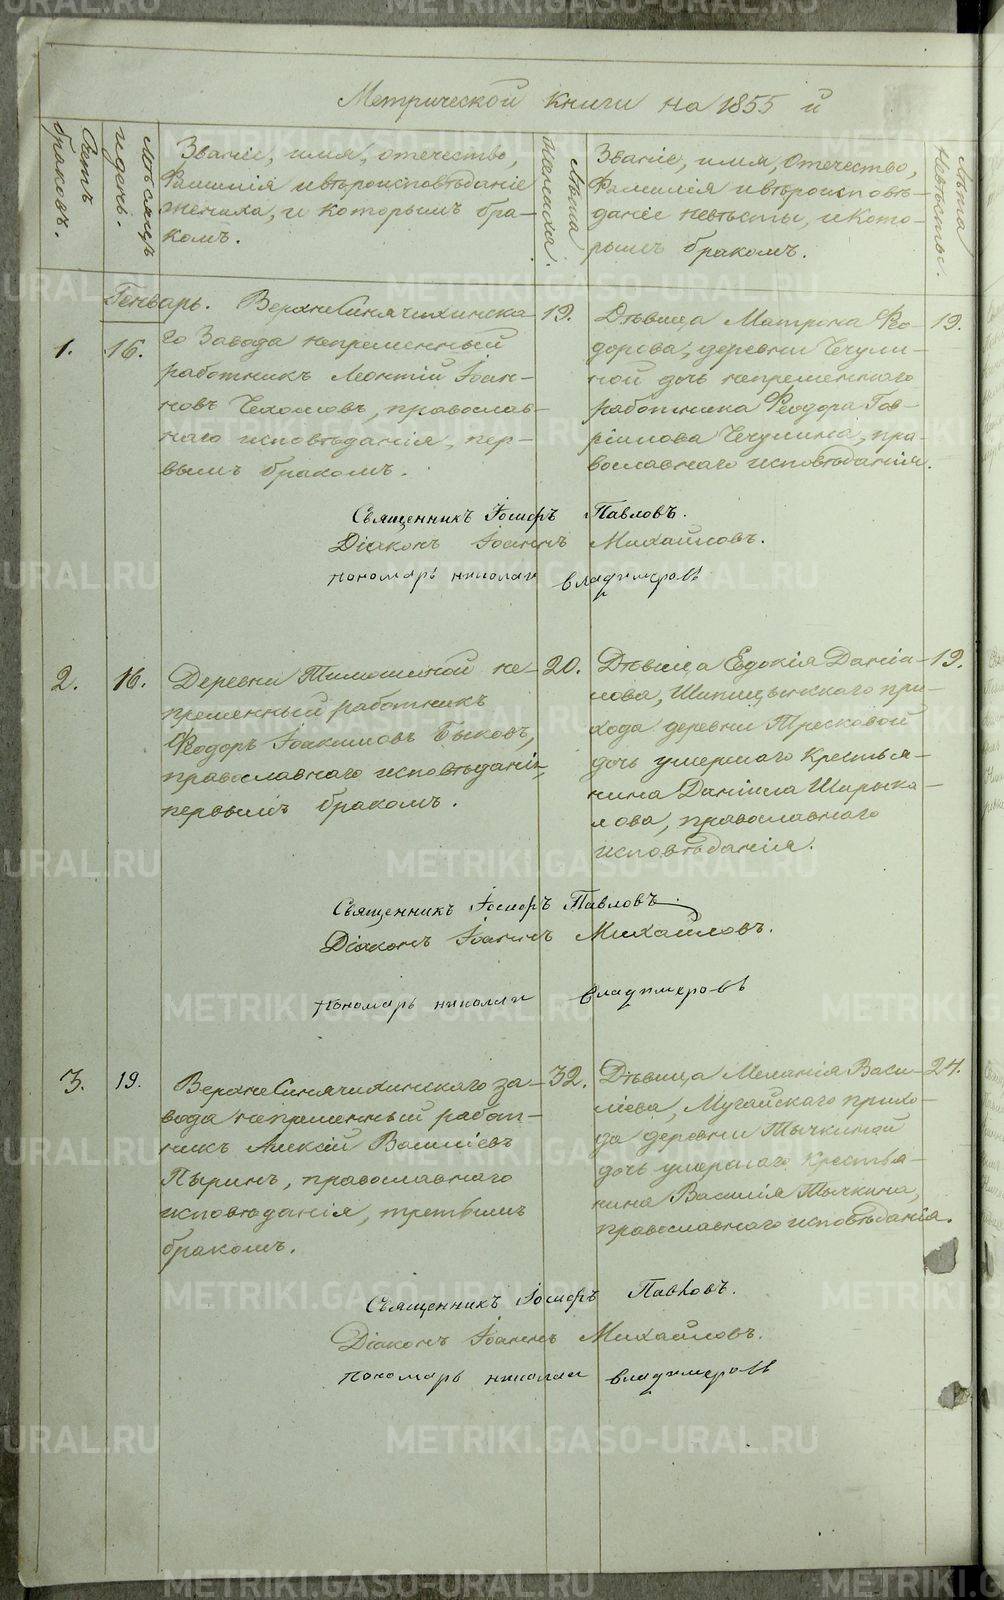 Метрической книги на 1855 й
Счетъ браковъ.
Мѣсяцъ и день.
Званіе, имя, отечество,
Фамилія и вѣроисповѣданіе
жениха, и которымъ бра-
комъ.
Лѣта жениха.
Званіе, имя, отечество,
Фамилія и вѣроисповѣ-
даніе невѣсты, и кото-
рымъ бракомъ.
Лѣта невѣсты.
Генварь.
1. 16.
ВерхнеСинячихинска-
го Завода непременный
работникъ Леонтій Іоан-
новъ Чехомовъ, православ-
наго исповѣданія, пер-
вымъ бракомъ.
19.
Дѣвица Матрона Фео-
дорова, деревни Чечули-
ной дочь непременнаго
работника Феодора Гав-
ріилова Чечулина, пра-
вославнаго исповѣданія.
19.
Священникъ Іосифъ Павловъ.
Діаконъ Іоаннъ Михайловъ.
пономарь николаи владимеровъ
2. 16.
Деревни Тимошиной не-
пременный работникъ
Феодоръ Іоакимовъ Быковъ,
православнаго исповѣданія,
первымъ бракомъ.
20.
Дѣвица Евдокія Даніи-
лова, Шипицынскаго при-
хода деревни Тресковой
дочь умершаго Крестья-
нина Даніила Шарыка-
лова, православнаго
исповѣданія.
19.
Священникъ Іосифъ Павловъ.
Діаконъ Іоаннъ Михайловъ.
пономарь николаи владимеровъ
3. 19.
ВерхнеСинячихинскаго за-
вода непременный работ-
никъ Алексій Василіевъ
Пыринъ, православнаго
исповѣданія, третьимъ
бракомъ.
32.
Дѣвица Меланія Васи-
ліева, Мугайскаго прихо-
да деревни Тычкиной
дочь умершаго крестья-
нина Василія Тычкина,
православнаго исповѣданія.
24.
Священникъ Іосифъ Павловъ.
Діаконъ Іоаннъ Михайловъ.
пономарь николаи владимеровъ
METRIKI.GASO-URAL.RU